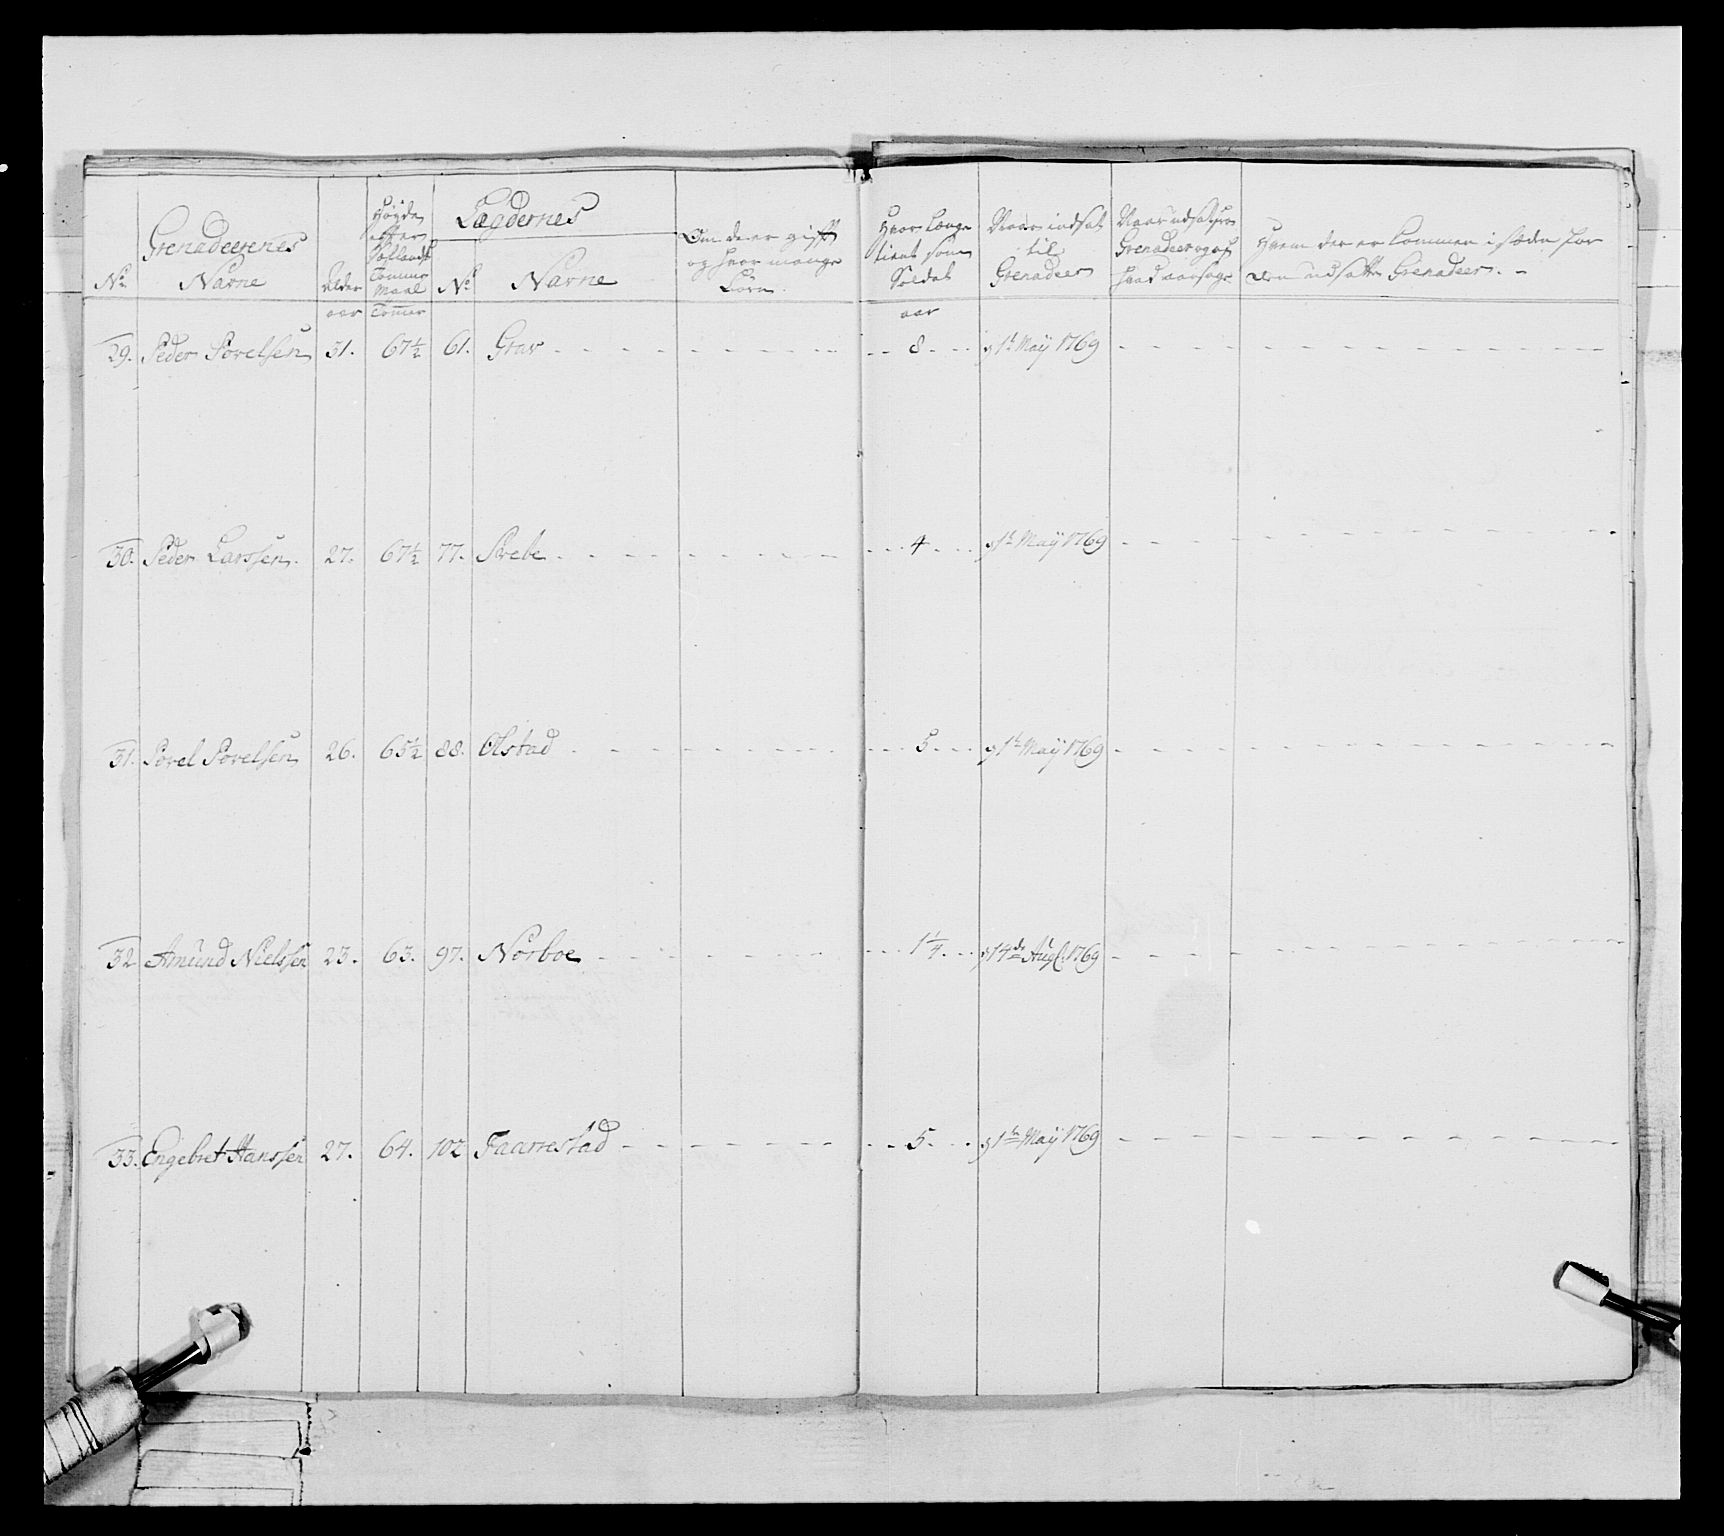 No
Grenadeerenes
Navne
Alder
Høyde
efter
Siellandsk
Tomme
Maal
Lægdernes
No
Navne
Om de er gift
og hvor mange
Børn.
Hvor længe
tient som
Soldat
Naar indsat
til
Grenadeer
Naar udsat fra
Grenadeer og af
hvad aarsage
Hvem der er kommen i stæden for
den udsatte Grenadeer. -
aar
Tommer
aar
29. Peder Povelsen 31. 67½ 61. Grav - - - 8 - - d 1t May 1769 - - -
30. Peder Larssen. 27. 67½ 77. Svebe - - - 4 - - d 1t May 1769 - - -
31. Povel Povelsen 26. 65½ 88. Olstad - - - 5 - - d 1t May 1769 - - -
32 Amund Nielssen 23. 63. 97. Norboe - - - 1¼ - - d 14de Aug. 1769 - - -
33. Engebret Hanssen 27. 64. 102 Faarrestad - - - 5 - - d 1te May 1769 - - -